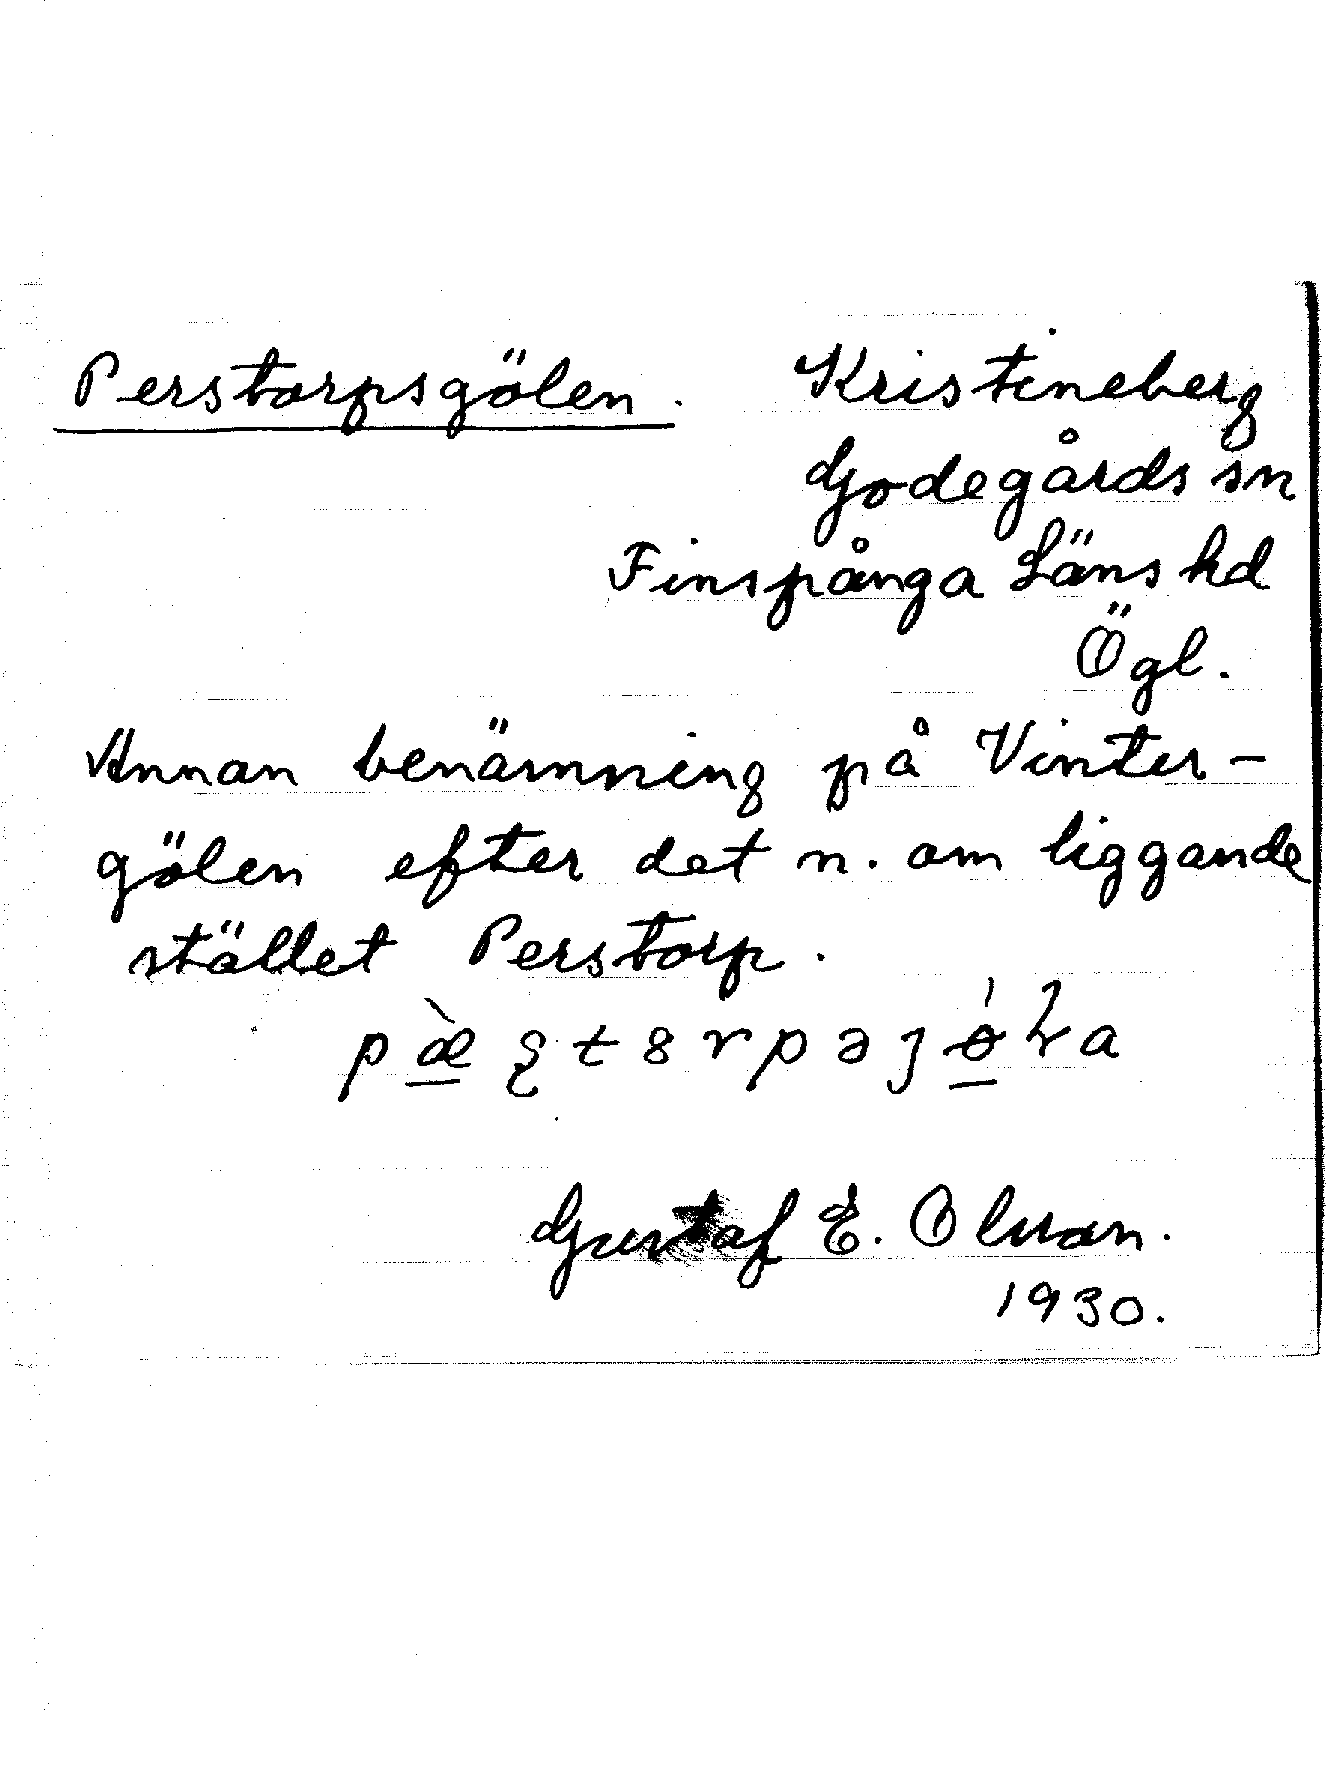 Perstorpsgölen. Kristineberg
Godegårds sn
Finspånga Läns hd
Ögl.
Annan benämning på Vinter-
gölen efter det n. om liggande
stället Perstorp.
Gustaf E. Olsson.
1930.